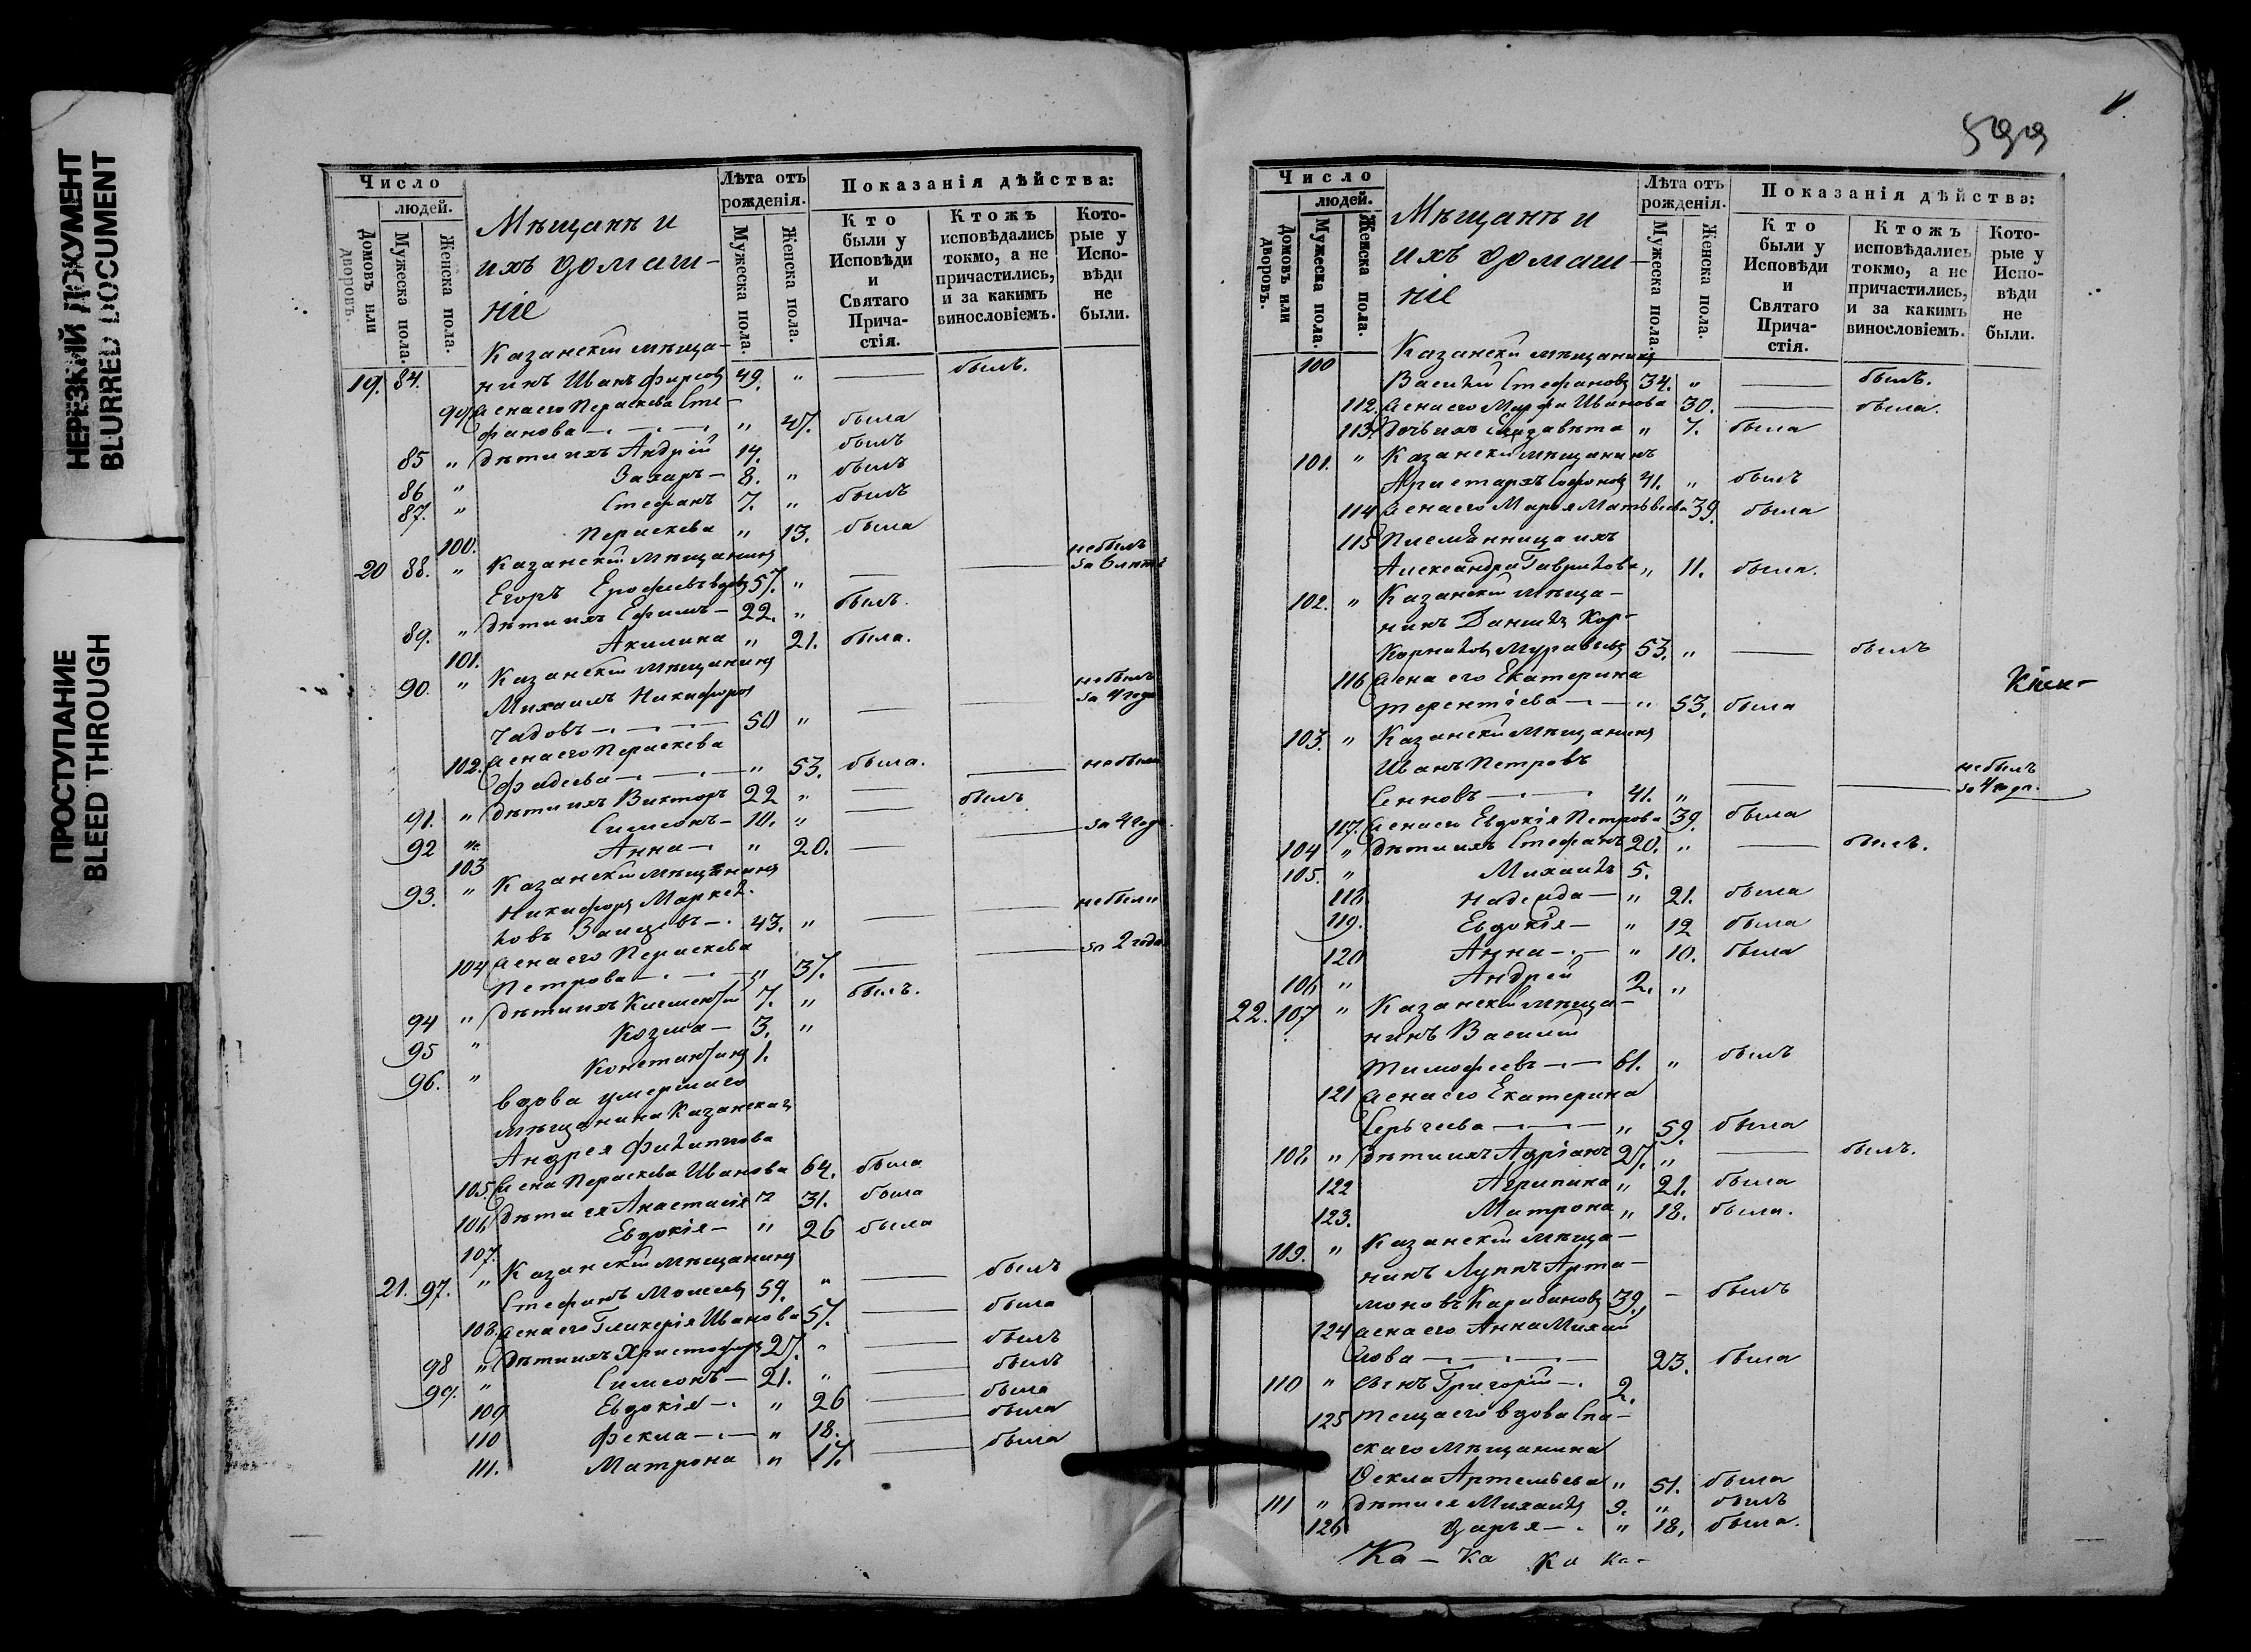 НЕРЕЗКИЙ ДОКУМЕНТ
BLURRED DOCUMENT
ПРОСТУПАНИЕ
BLEED THROUGH
Число
людей.
Домовъ или дворовъ.
Мужеска пола.
Женска пола.
Мѣщанъ и
ихъ домаш-
ніе
Лѣта отъ рожденія.
Мужеска пола.
Женска пола.
Показанія дѣйства:
Кто были у Исповѣди и Святаго Прича-стія.
Ктожъ исповѣдались токмо, а не причастились, и за какимъ винословіемъ.
Кото-рые у Испо-вѣди не были.
Казанскій мѣща-
19. 84. нинъ Иванъ Фирсовъ 49. " — былъ.
99 Жена его Параскева Сте-
фанова — " 47. была
85 " Дѣти ихъ Андрій 14. былъ
86 " Захаръ — 8. " былъ
87. " Стефанъ 7. " былъ
100. Параскева " 13. была
20 88. " Казанскій мѣщанинъ небылъ
Егоръ Ерофѣевъ вдовъ 57. " — — за 6 лѣтъ
89. " Дѣти ихъ Ефимъ — 22. " былъ.
101. Акилина " 21. была.
90. " Казанскій мѣщанинъ
Михаилъ Никифоровъ небылъ
Чадовъ — 50 " — — за 4 года
102. Жена его Параскева
Фадеева — " 53. была.
91. " Дѣти ихъ Викторъ 22 " — — небыли
92 " Симеонъ — 10. " — былъ
103 Анна — " 20. — — за 4 года
93. " Казанскій мѣщанинъ
Никифоръ Маркел-
ловъ Зайцевъ — 43. " — — небыли
104 Жена его Параскева
Петрова — " 37. — — за 2 года
94 " Дѣти ихъ Климентій 7. " былъ.
95 " Козма — 3. "
96. " Константинъ 1.
вдова умершаго
мѣщанина Казанскаго
Андрея Филиппова
105. Жена Параскева Иванова 64. была
106 Дѣти ея Анастасія " 31. была
107. Евдокія — " 26 была
21. 97. " Казанскій мѣщанинъ
Стефанъ Моисеевъ 59. " — былъ
108. Жена его Гликерія Иванова 57. — была
98 " Дѣти ихъ Христофоръ 27. " — былъ
99. " Симеонъ — 21. " — былъ
109 Евдокія — " 26 — была
110 Фекла — " 18. — была
111. Матрона " 17. — была
599
Число
людей.
Домовъ или дворовъ.
Мужеска пола.
Женска пола.
Мѣщанъ и
ихъ домаш-
ніе
Лѣта отъ рожденія.
Мужеска пола.
Женска пола.
Показанія дѣйства:
Кто были у Исповѣди и Святаго Прича-стія.
Ктожъ исповѣдались токмо, а не причастились, и за какимъ винословіемъ.
Кото-рые у Испо-вѣди не были.
100 Казанскій мѣщанинъ
Василій Стефановъ 34. " — былъ.
112. Жена его Марфа Иванова 30. — была.
113. Дочь ихъ Елизавѣта " 7. была
101. " Казанскій мѣщанинъ
Аристархъ Софоновъ 41. " былъ
114 Жена его Марья Матвѣева 39. была
115 Племянница ихъ
Александра Гаврилова " 11. была.
102. " Казанскій мѣща-
нинъ Даніилъ Кор-
Корниловъ Муравьевъ 53. " — былъ
116 Жена его Екатерина
Терентіева — " 53. была
103. " Казанскій мѣщанинъ
Иванъ Петровъ небылъ
Сенновъ — 41. " — — за 4 года.
117. Жена его Евдокія Петрова 39. была
104 " Дѣти ихъ Стефанъ 20. " — былъ.
105. " Михаилъ 5.
118. Надежда — " 21. была
119. Евдокія — " 12 была
120 Анна — " 10. была
106 " Андрей 2. "
22. 107 " Казанскій мѣща-
нинъ Василій
Тимофѣевъ — 61. " былъ
121 Жена его Екатерина
Сергѣева — " 59. была
108. " Дѣти ихъ Адріанъ 27. " — былъ.
122 Агрипина " 21. была
123. Матрона " 18. была.
109. " Казанскій мѣща-
нинъ Луппъ Арта-
моновъ Карабановъ 39. — былъ
124 Жена его Анна Михай-
лова — 23. была
110 " Сынъ Григорій — 2.
125 Теща его вдова Спа-
скаго мѣщанина
Фекла Артемьева " 51. была
111 " Дѣти ея Михаилъ 9. " былъ
126 Дарья — " 18. была.
Ка — Ка Ка Ка —